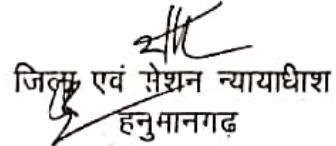 जिला एवं सेशन न्यायाधीश
हनुमानगढ़